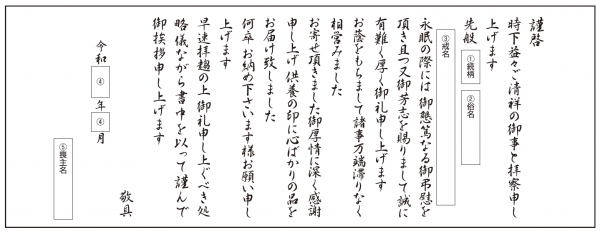 謹啓
時下益々ご清祥の御事と拝察申し
上げます
先般 ①続柄 ②俗名
③戒名
永眠の際には 御懇篤なる御弔慰を
頂き且つ又御芳志を賜りまして誠に
有難く厚く御礼申し上げます
お蔭をもちまして諸事万端滞りなく
相営みました
お寄せ頂きました御厚情に深く感謝
申し上げ 供養の印に心ばかりの品を
お届け致しました
何卒お納め下さいます様お願い申し
上げます
早速拝趨の上 御礼申し上ぐべき処
略儀ながら書中を以って謹んで
御挨拶申し上げます
敬具
令和 ④ 年 ④ 月
⑤喪主名